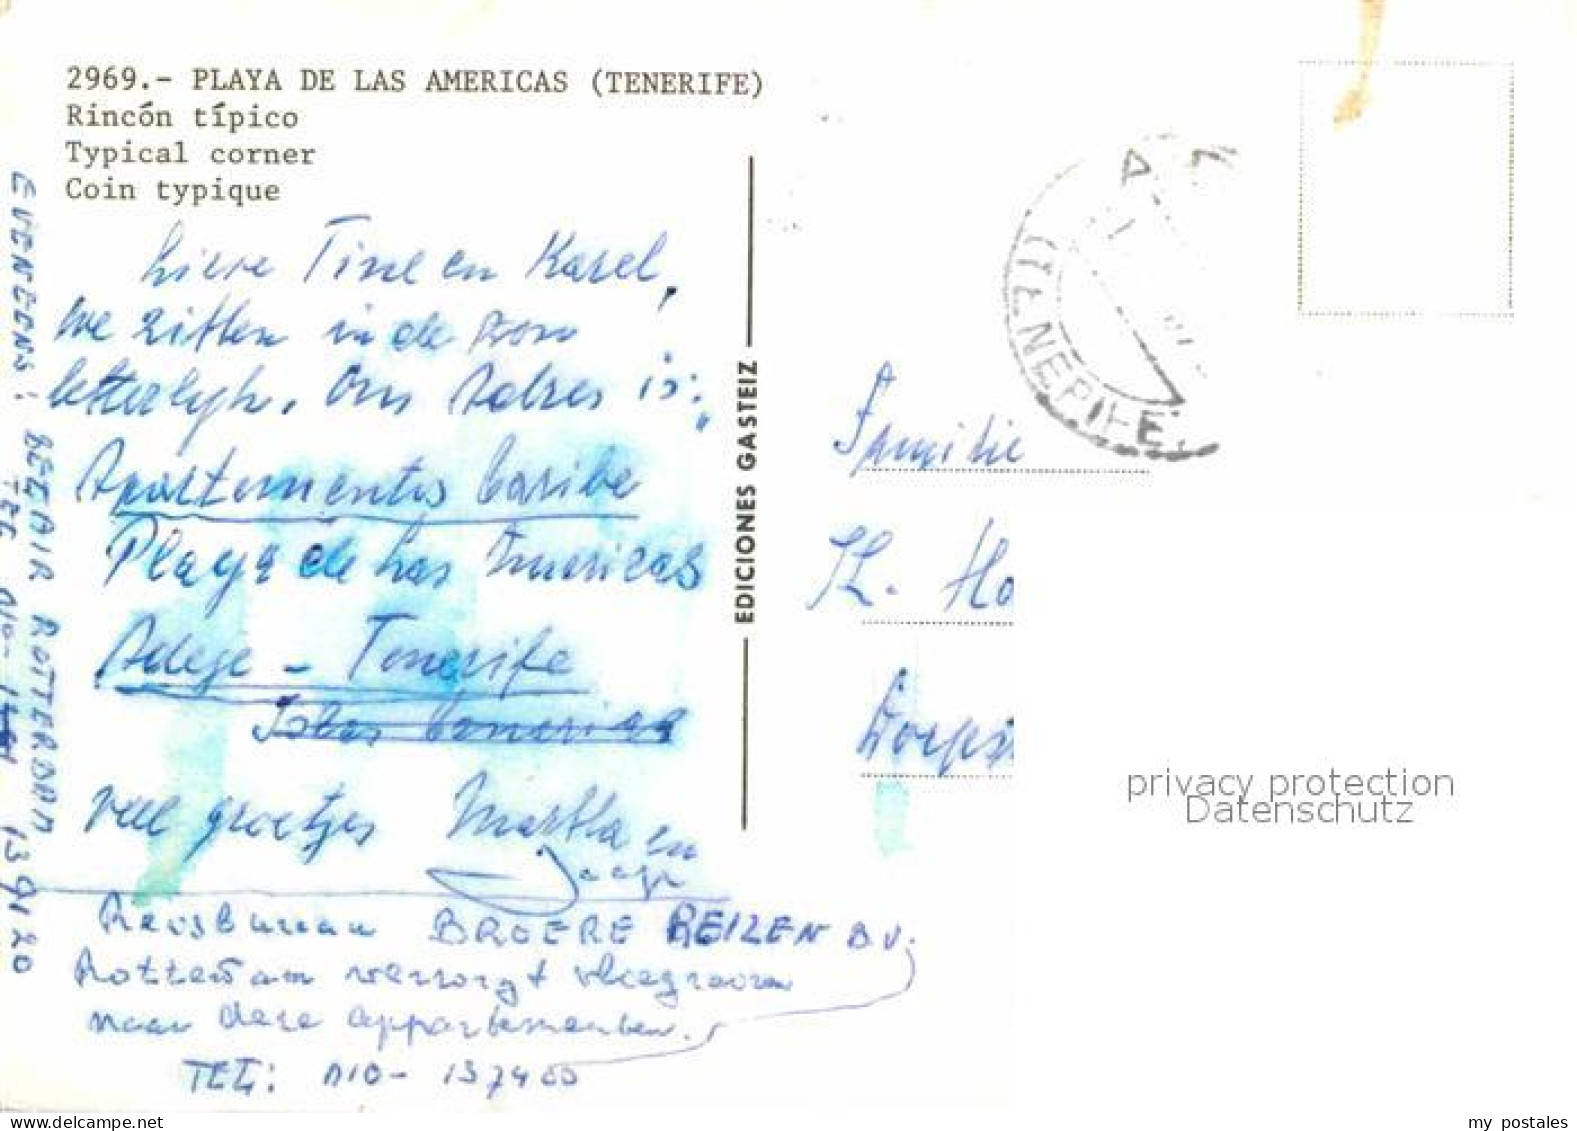 2969.- PLAYA DE LAS AMERICAS (TENERIFE)
Rincón típico
Typical corner
Coin typique
Lieve Tine en Karel,
We zitten in de zon
letterlijk. Ons Adres is:
Apartementos Caribe
Playa de Las Americas
Adege - Tenerife
Islas Canarias
veel groetjes Martha en
Jaap
Reisbureau BROERE REIZEN B.V.
Rotterdam verzorgt vliegreizen
naar deze appartementen.
TEL: 010-
EVENEENS: BELAIR ROTTERDAM
TEL 010- 139120
EDICIONES GASTEIZ
TENERIFE
Familie
H. Ho
Dorps
privacy protection
Datenschutz
my postales